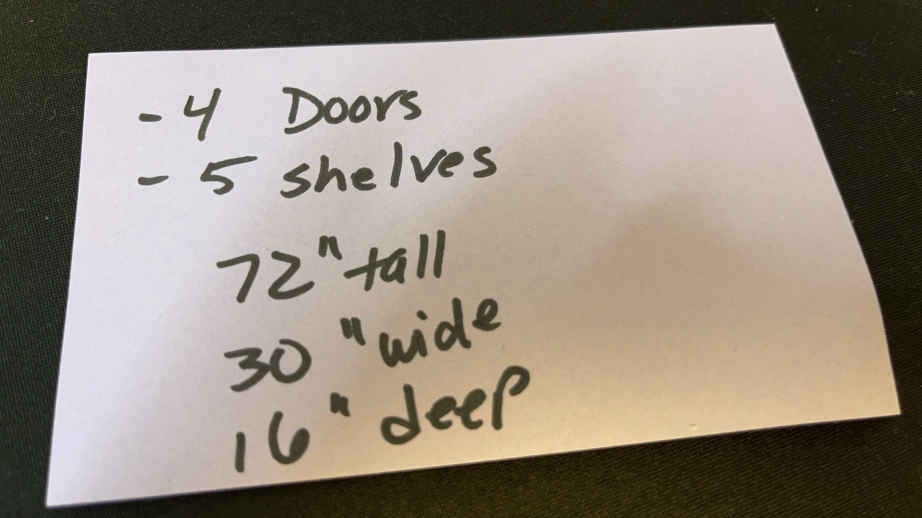 - 4 Doors
- 5 shelves
72" tall
30" wide
16" deep